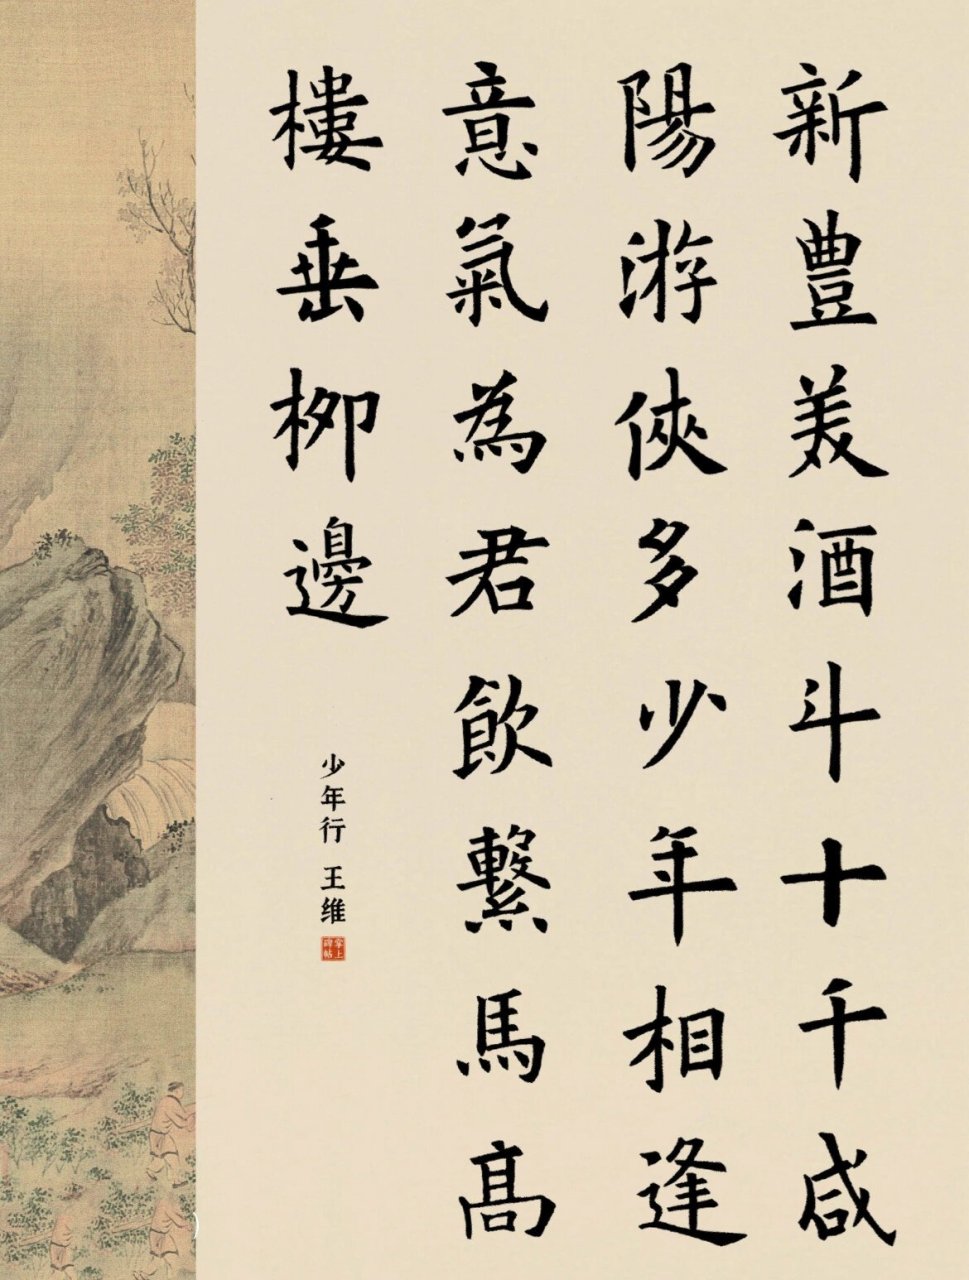 新豊美酒斗十千咸
陽游俠多少年相逢
意氣為君飲繫馬高
樓垂柳邊
少年行 王维
掌上碑帖